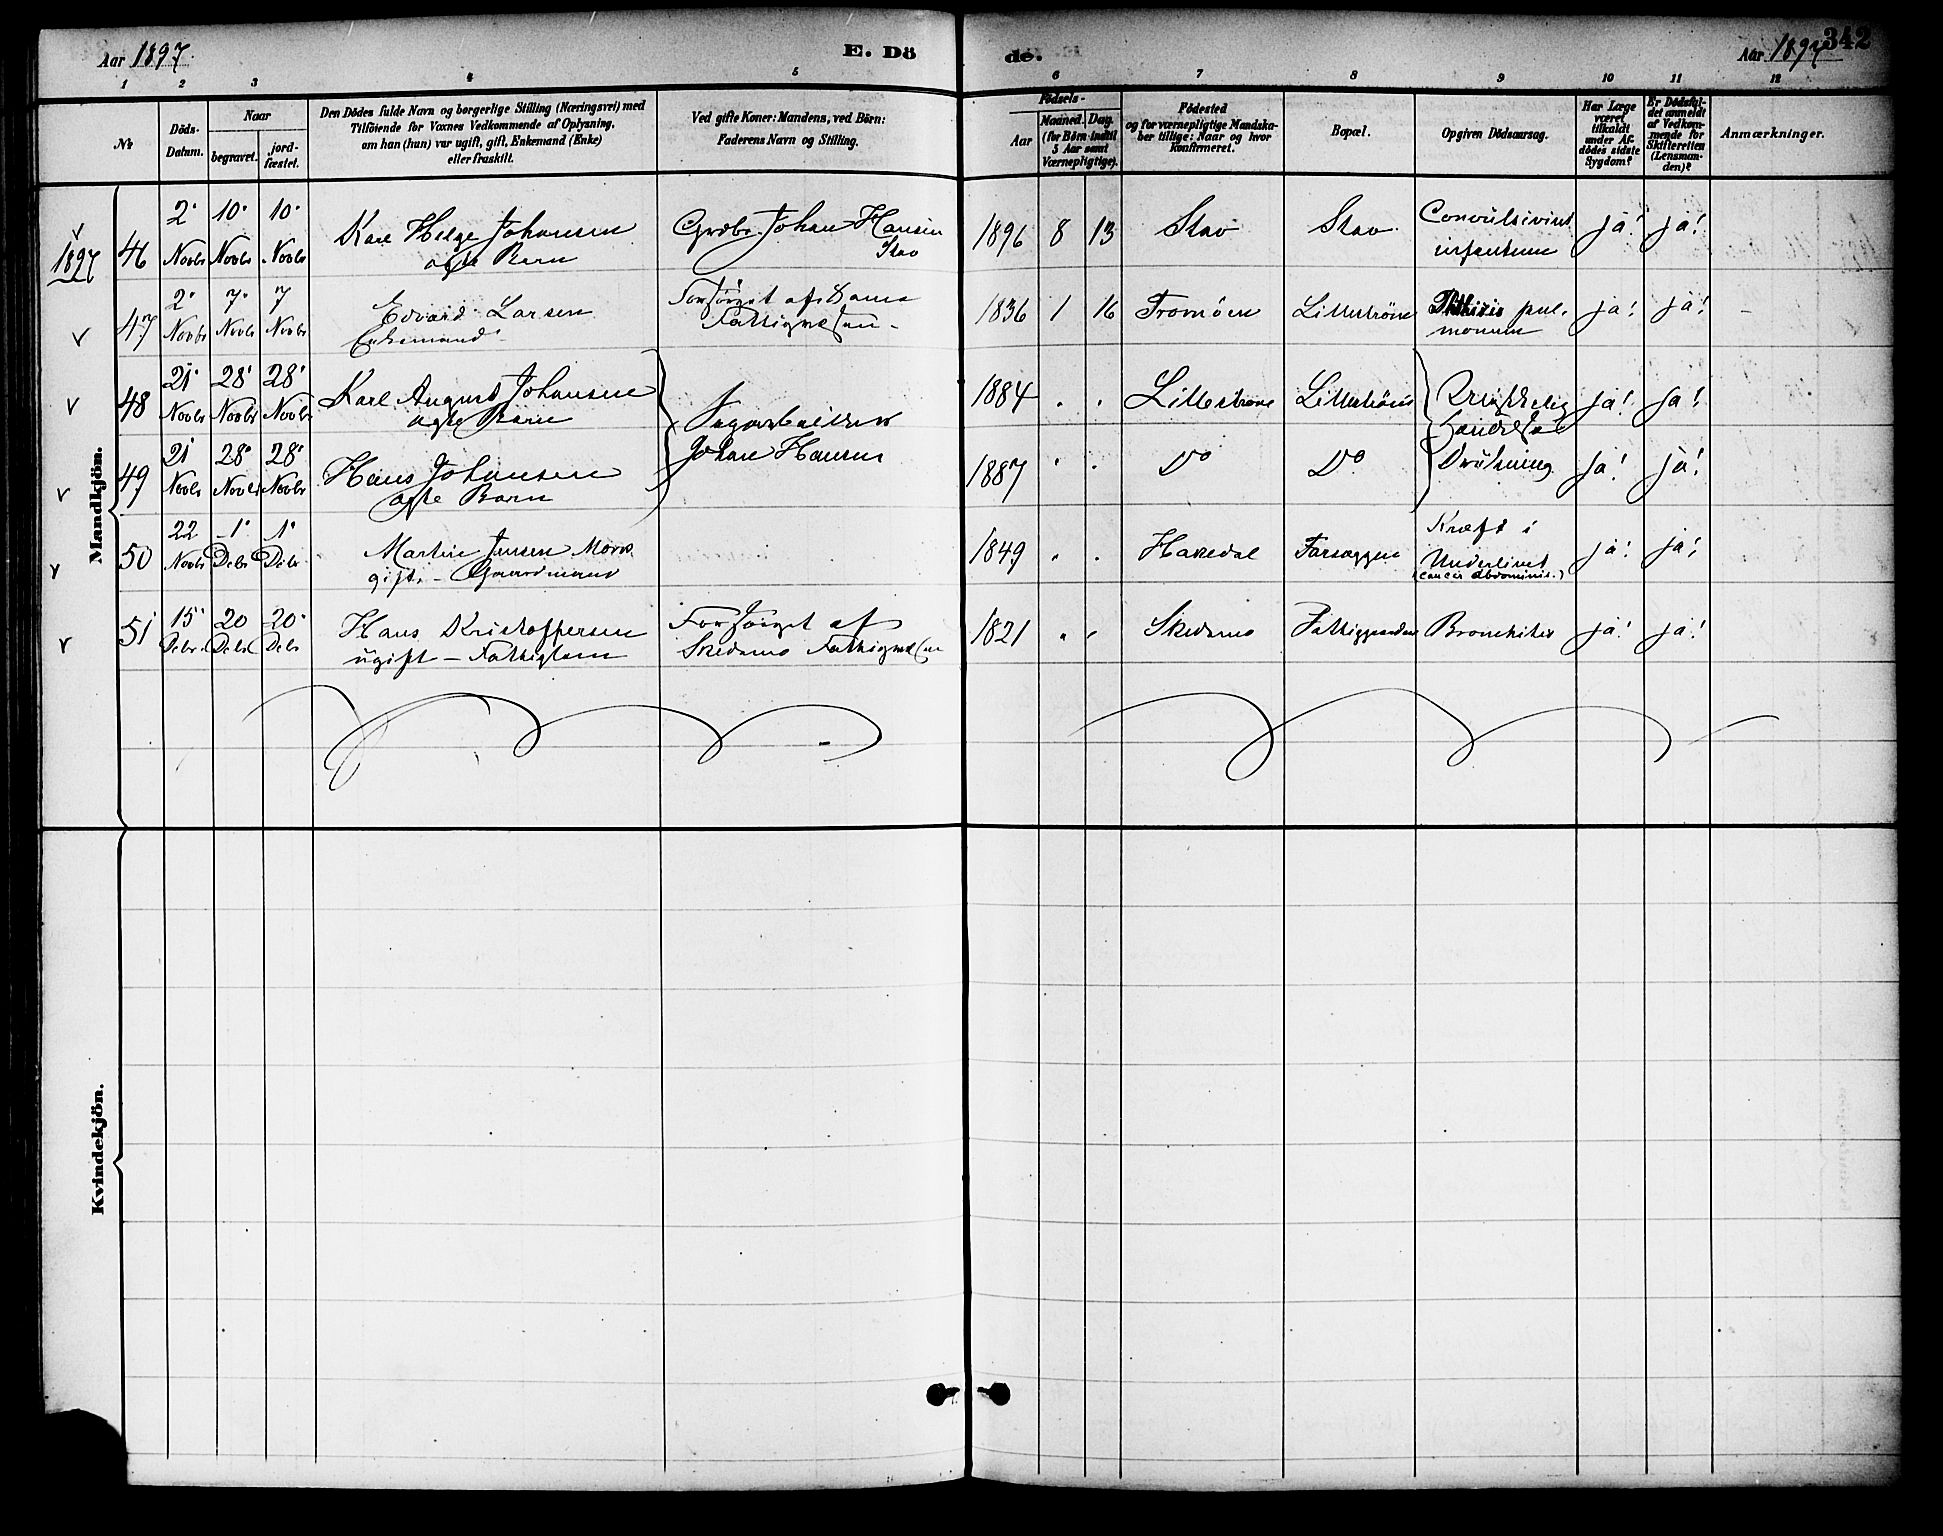 Aar 1897.
E. Dö
de.
Aar 1897
342
1 2 3 4 5 6 7 8 9 10 11 12
№
Döds-
Datum.
Naar
begravet.
jord-
fæstet.
Den Dödes fulde Navn og borgerlige Stilling (Næringsvei) med
Tilföiende for Voxnes Vedkommende af Oplysning,
om han (hun) var ugift, gift, Enkemand (Enke)
eller fraskilt.
Ved gifte Koner: Mandens, ved Börn:
Faderens Navn og Stilling.
Födsels-
Aar
Maaned. Dag.
(for Börn indtil
5 Aar samt
Værnepligtige).
Födested
og for værnepligtige Mandska-
ber tillige: Naar og hvor
konfirmeret.
Bopæl.
Opgiven Dödsaarsag.
Har Læge
været
tilkaldt
under Af-
dödes sidste
Sygdom?
Er Dödsfal-
det anmeldt
af Vedkom-
mende for
Skifteretten
(Lensman-
den)?
Anmærkninger.
Mandkjön.
1897
46 2. Novbr 10. Novbr 10. Novbr
Karl Helge Johansen
ægte Barn
Johan Hansen
Stav
1896 8 13 Stav Stav
infantum
ja! ja!
47 2. Novbr 7. Novbr 7 Novbr
Edvard Larsen
Enkemand
Forsörget af
Fattigvæsen
1836 1 16 Tromöen Lilleström
Phthisis pul-
monum
ja! ja! -
48 21. Novbr 28. Novbr 28. Novbr
Karl August Johansen
ægte Barn
Sagarbeider
Johan Hansen
1884 " " Lilleström Lilleström
ja! ja!
49 21 Novbr 28. Novbr 28. Novbr
Hans Johansen
ægte Barn
1887 " " Do Do
Drukning
ja! ja!
50 22 Novbr 1. Debr 1. Debr
Martin Jensen
gift. - Gaardmand
1849 " " Hakedal
Kræft i
Underlivet
(cancer abdominis.)
ja! ja!
51 15. Debr. 20 Debr 20. Debr
Hans Kristoffersen
ugift - Fattiglem
Forsörget af
Skedsmo Fattigvæsen
1821 " " Skedsmo Fattiggaarden Bronchites ja! ja!
Kvindekjön.